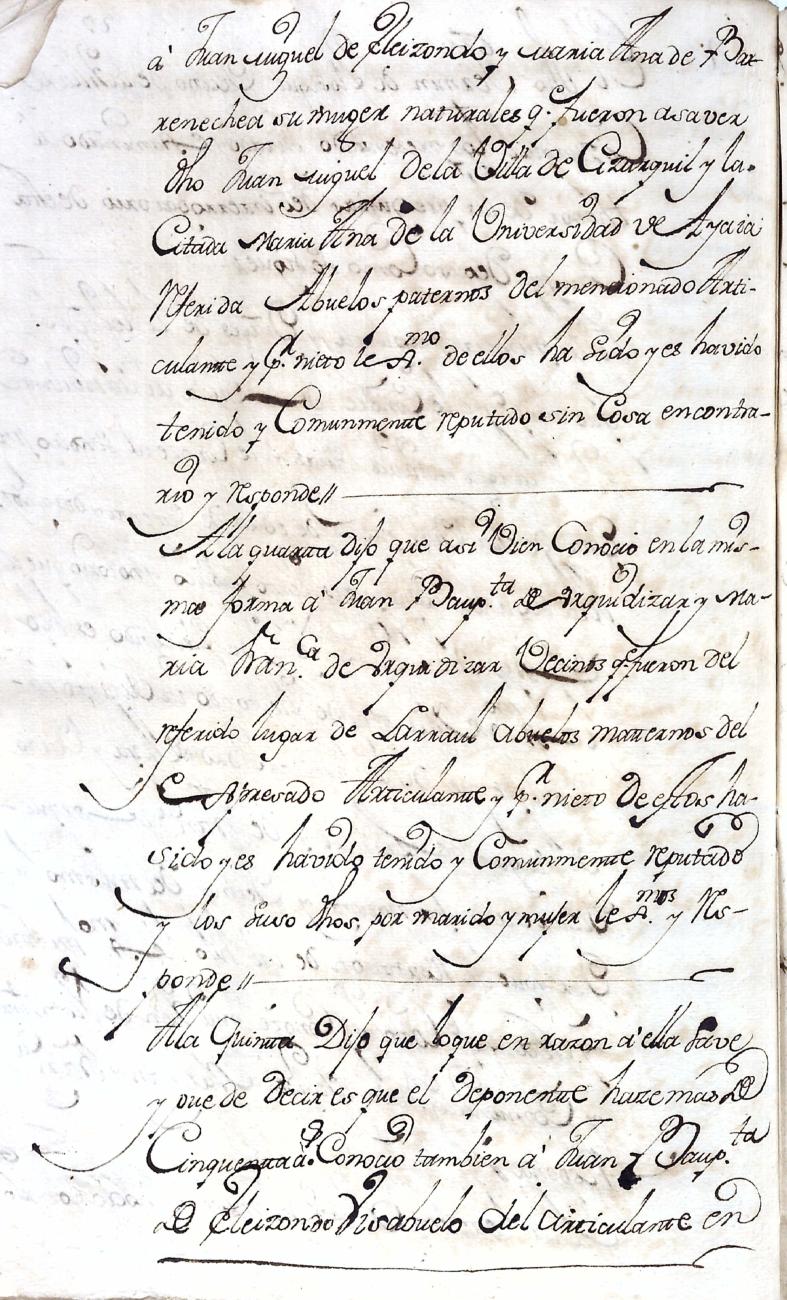 à Juan Miguel de Eleizondo, y Maria Ana de Bar-
renechea su muger naturales q.e fueron asaver
dho Juan Miguel de la Villa de Cizurquil y la
Citada Maria Ana de la Universidad de Ayaia
Referida Abuelos paternos del mencionado Arti-
culante y p.r nieto lex.mo de ellos ha sido y es havido
tenido y Comunmente reputado sin Cosa en contra-
rio y responde //
A la quarta dijo que asi vien Conocio en la mis-
ma forma à Juan Baup.ta de Arquidizar y Ma-
ria Fran.ca de Arquidizar Vecinos q.e fueron del
referido lugar de Larraul Abuelos maternos del
Expresado Articulante, y p.r nieto de estos ha
sido y es havido tenido y Comunmente reputado
y los suso dhos por marido y mujer lex.mos y Res-
ponde //
A la Quinta Dijo que lo que en razon à ella save
y puede decir es que el deponente haze mas de
Cinquenta a.s Conocio tambien à Juan Baup.ta
de Eleizondo Visabuelo del articulante en